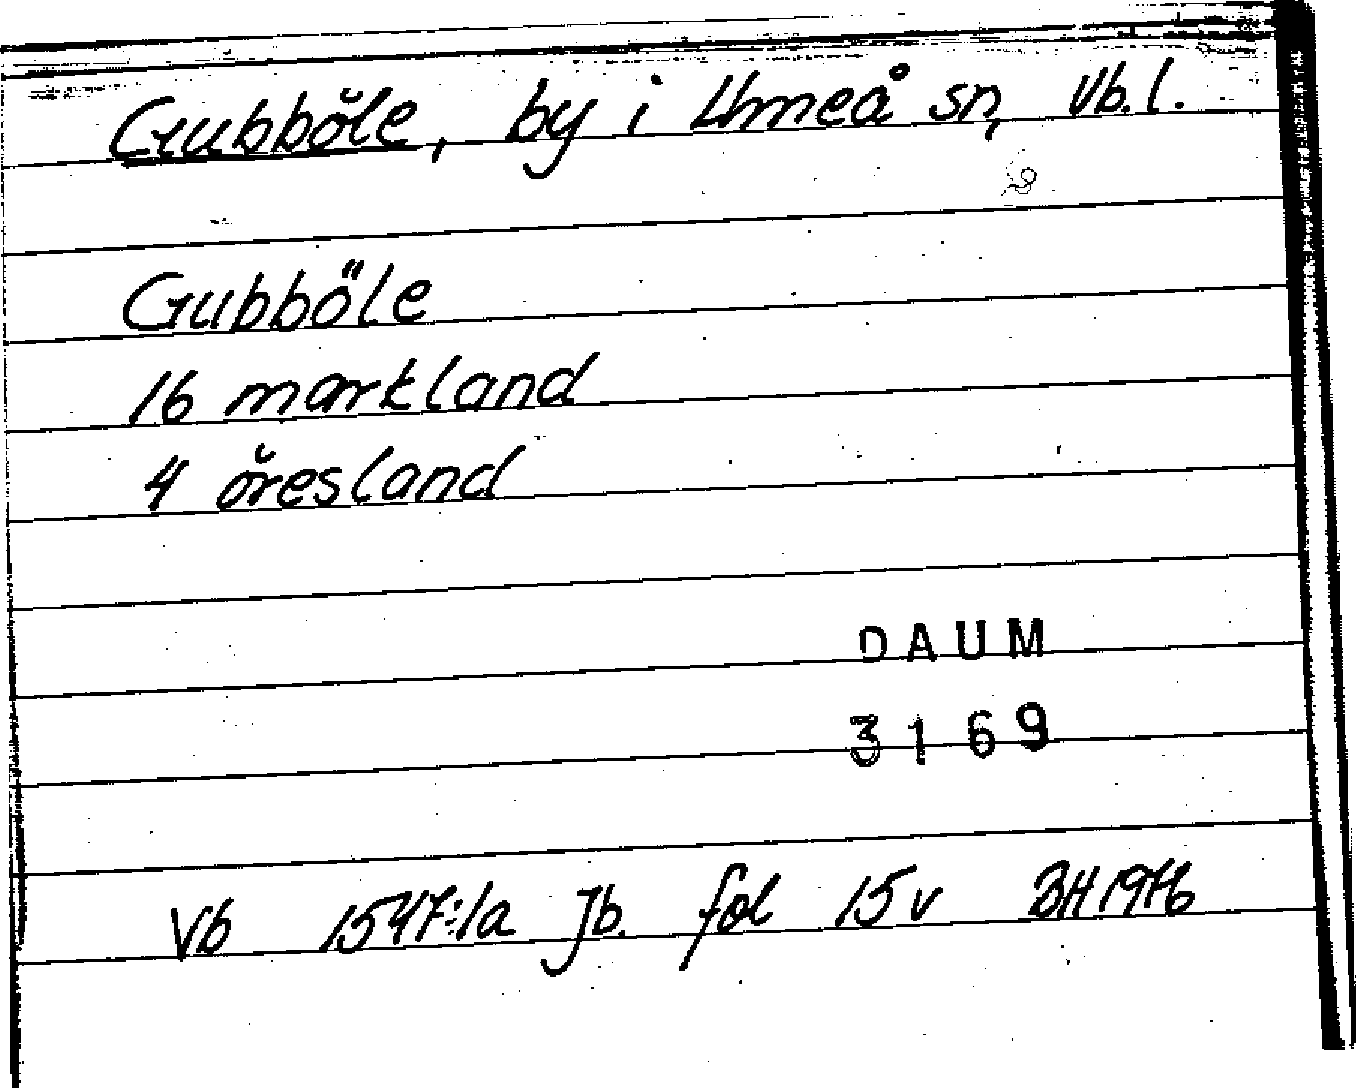 Gubböle, by i Umeå sn, Vb.l.
Gubböle
16 markland
4 öresland
DAUM
3169
Vb 1547:1a Jb. fol 15 v BH 1976